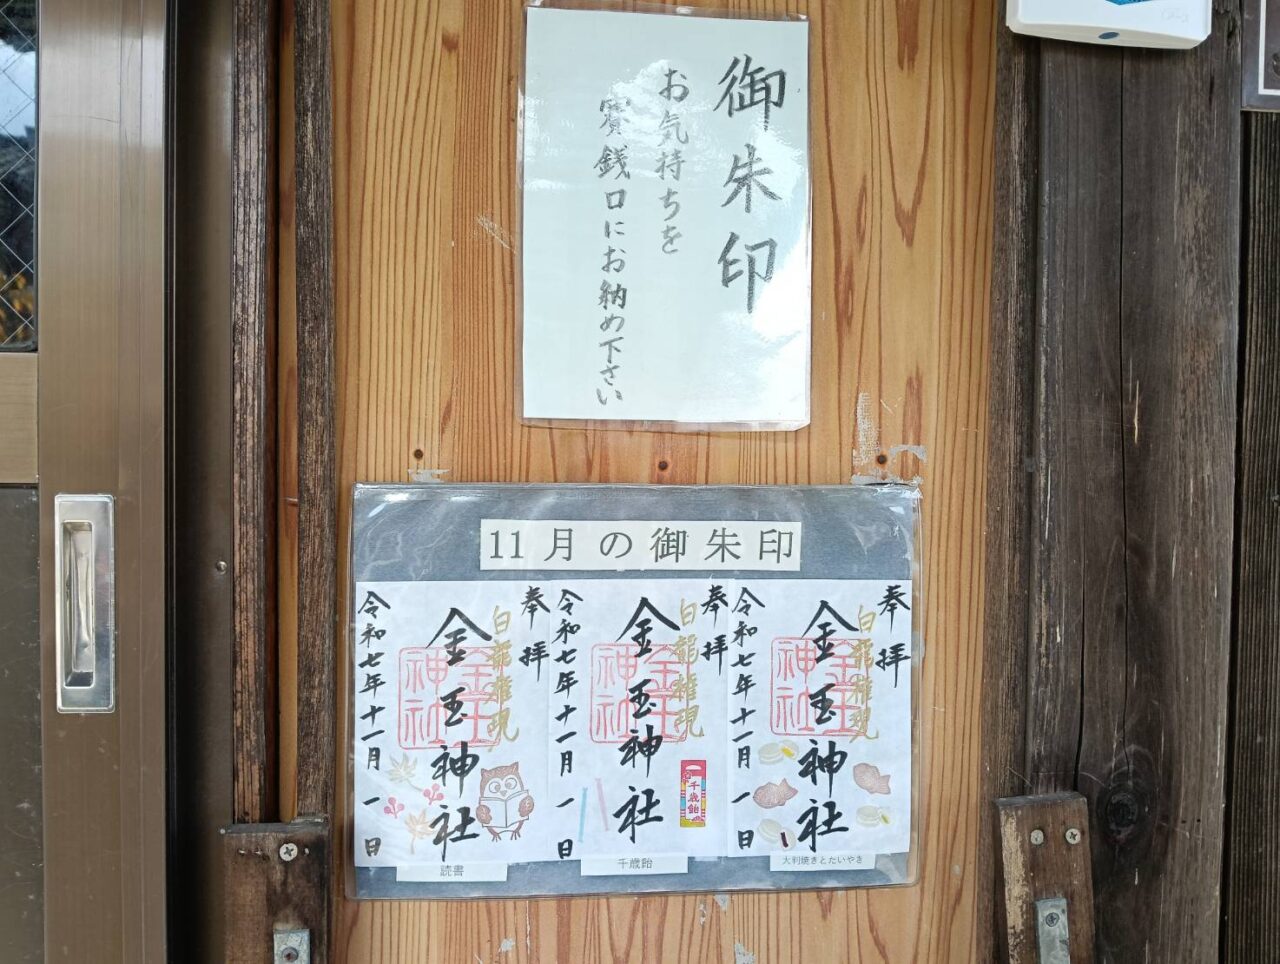 御朱印
お気持ちを
賽銭口にお納め下さい
11月の御朱印
奉拝
白龍権現
金玉神社
金玉神社
令和七年十一月一日
大判焼きとたいやき
奉拝
白龍権現
金玉神社
金玉神社
千歳飴
令和七年十一月一日
千歳飴
奉拝
白龍権現
金玉神社
金玉神社
令和七年十一月一日
読書